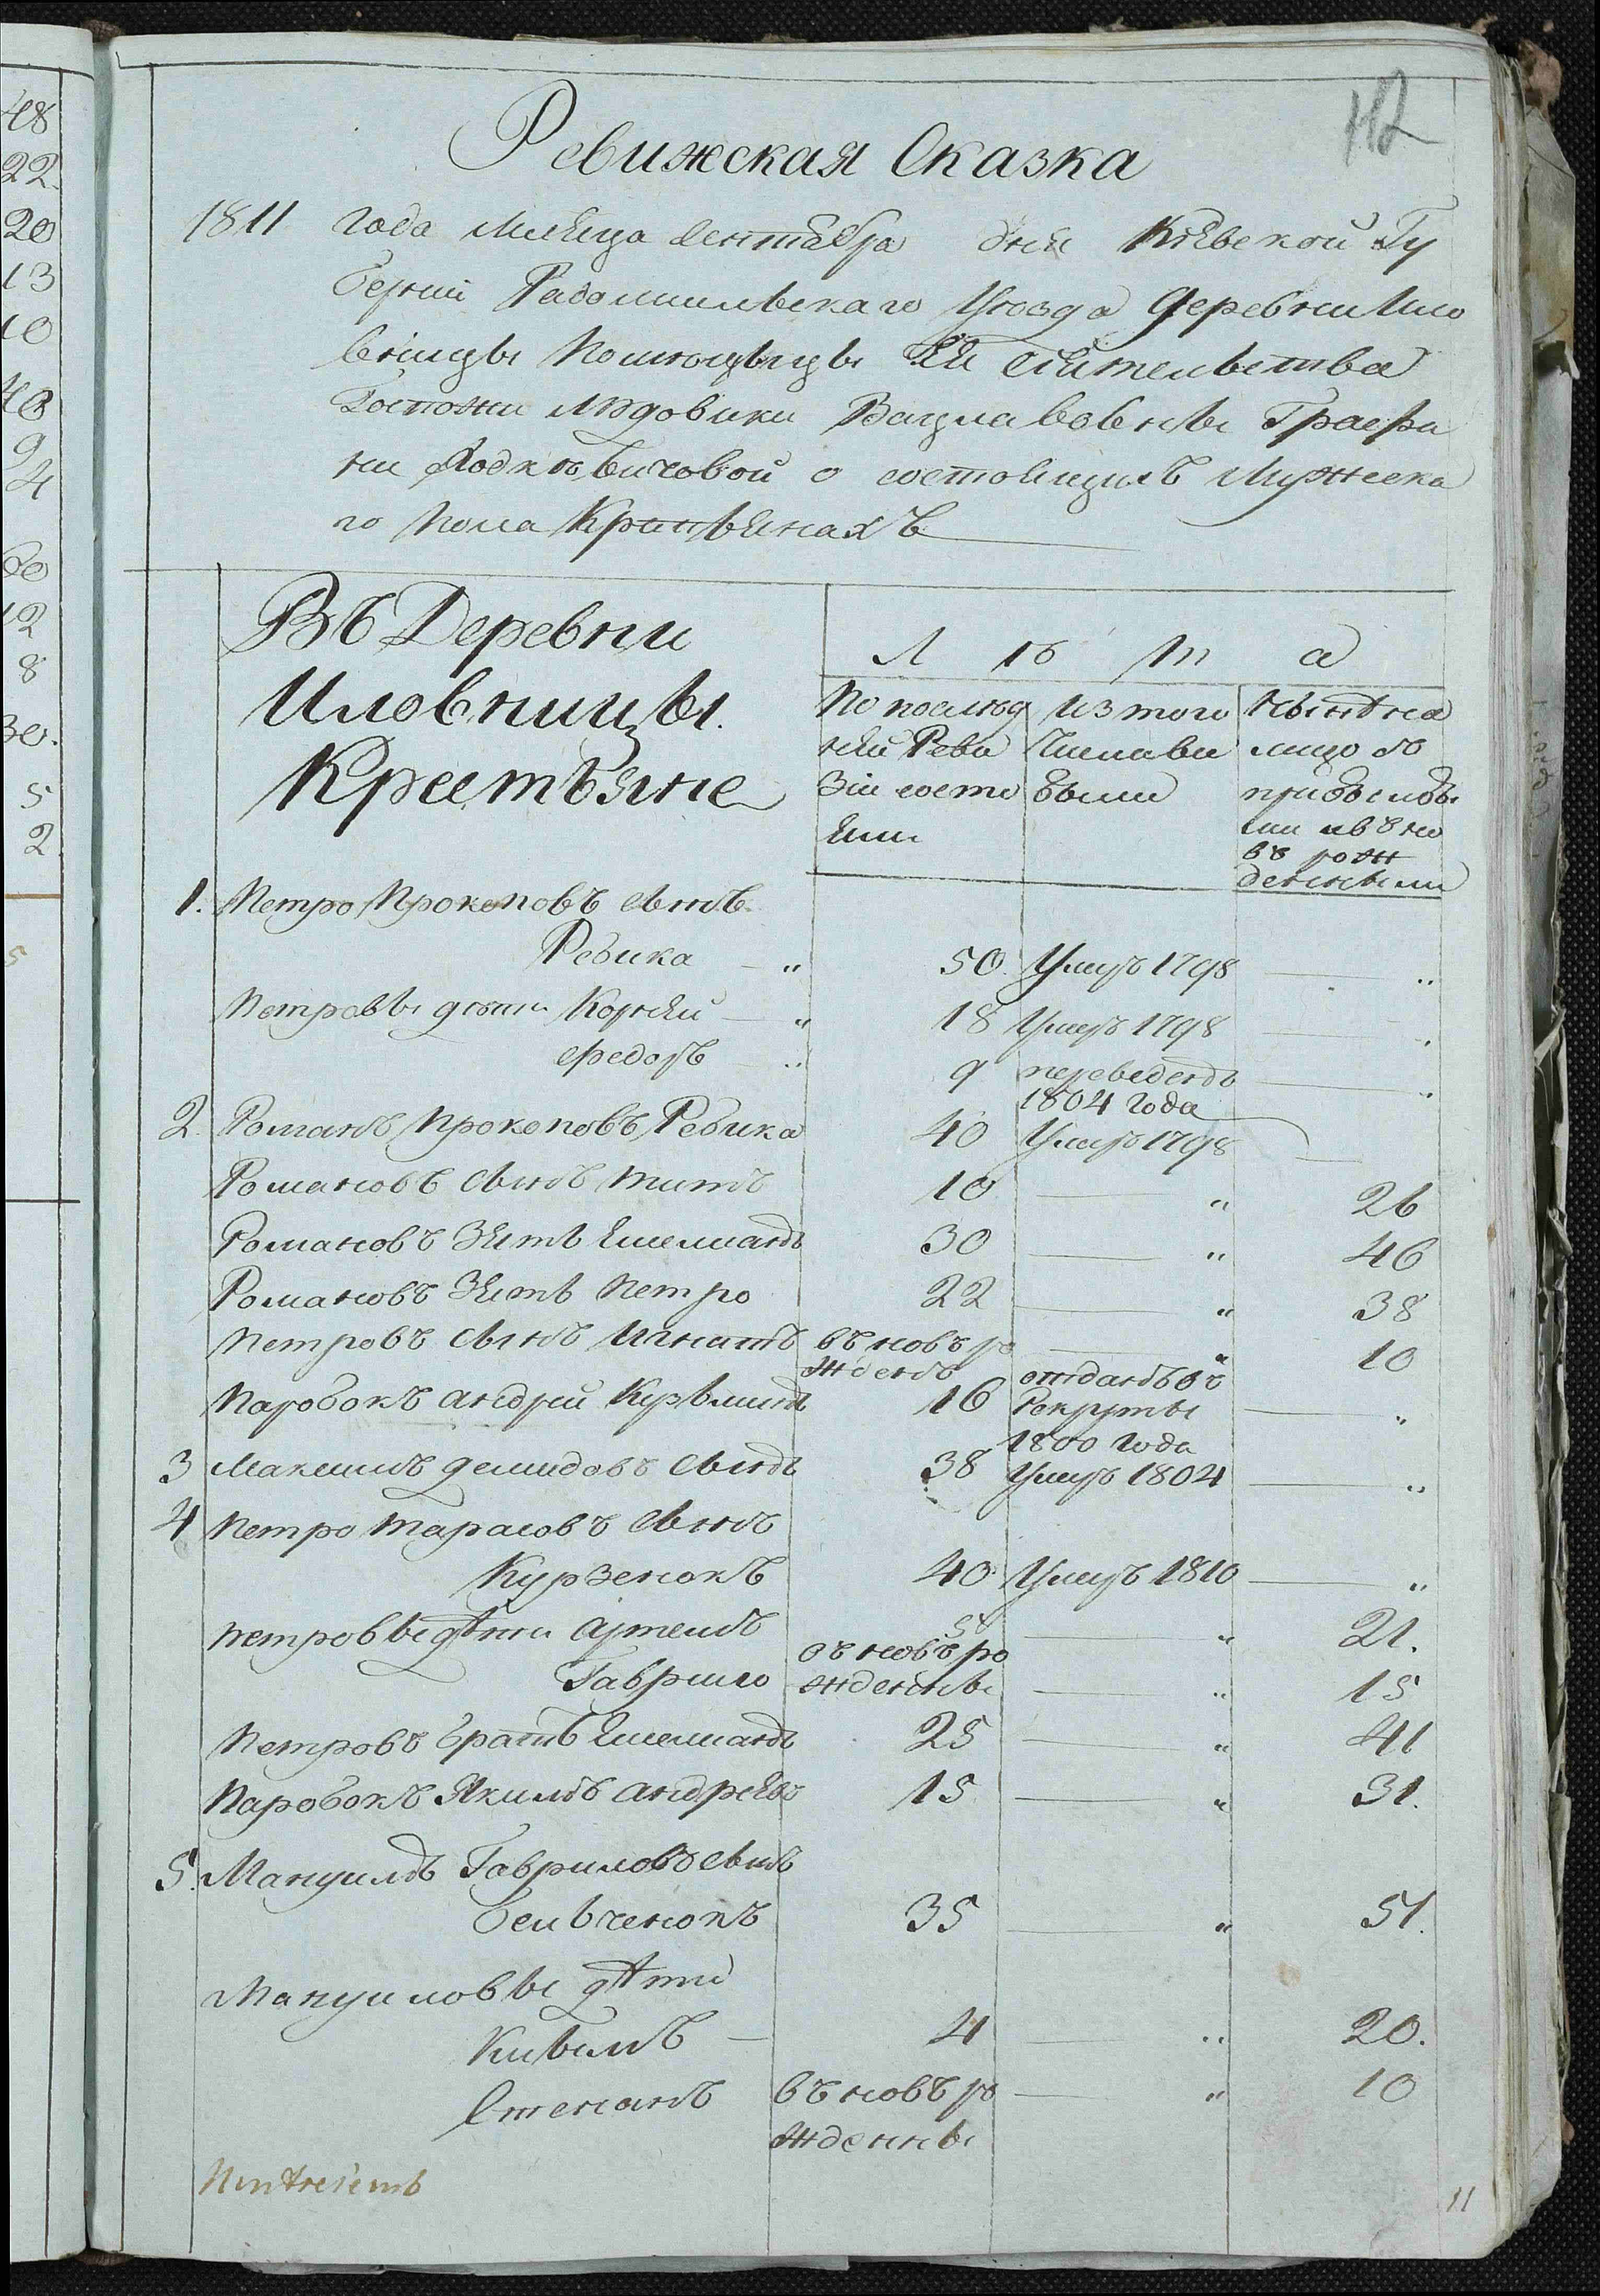 112
Ревижская Сказка
1811 года Месяца Сентября дня Кіевской Гу
берніи Радомишльскаго уѣзда Деревни Ило
вницы Помѣщицы Ея Сіятельства
Госпожи Людовики Вацлавовны Графи
ни Ходкѣвичовой о состоящихъ Мужеска
го пола Кристьянахъ
Въ Деревни
Иловницы.
Крестьяне
Л ѣ т а
По послѣд
ней Реви
зіи состо
яли
Из того
Числа вы
были
Нынѣ на
лицо съ
прибылы
ми и въно
въ рож
денными
1. Петро Прокоповъ сынъ
Ребика 50 Умеръ 1798
Петровы дѣти Корней 18 Умеръ 1798
Федоръ 9 переведенъ
1804 года
2. Романъ Прокоповъ Ребика 40 Умеръ 1798
Романовъ сынъ Титъ 10 26
Романовъ Зять Емелианъ 30 46
Романовъ Зять Петро 22 38
Петровъ сынъ Игнатъ въновъ ро
жденъ 10
Паробокъ Андрей 16 отданъ въ
Рекруты
1800 года
3 Максимъ Демидовъ сынъ 38 Умеръ 1804
4 Петро Тарасовъ сынъ
Курзенокъ 40 Умеръ 1810
Петровы дѣти Артемъ 21.
Гаврило въновъ ро
жденны 15
Петровъ братъ Емелианъ 25 41
Паробокъ Якимъ Андреевъ 15 31.
5. Мануилъ Гавриловъ сынъ
35 51.
Мануиловы дѣти
4 20.
Степанъ въновъ ро
жденны 10
11